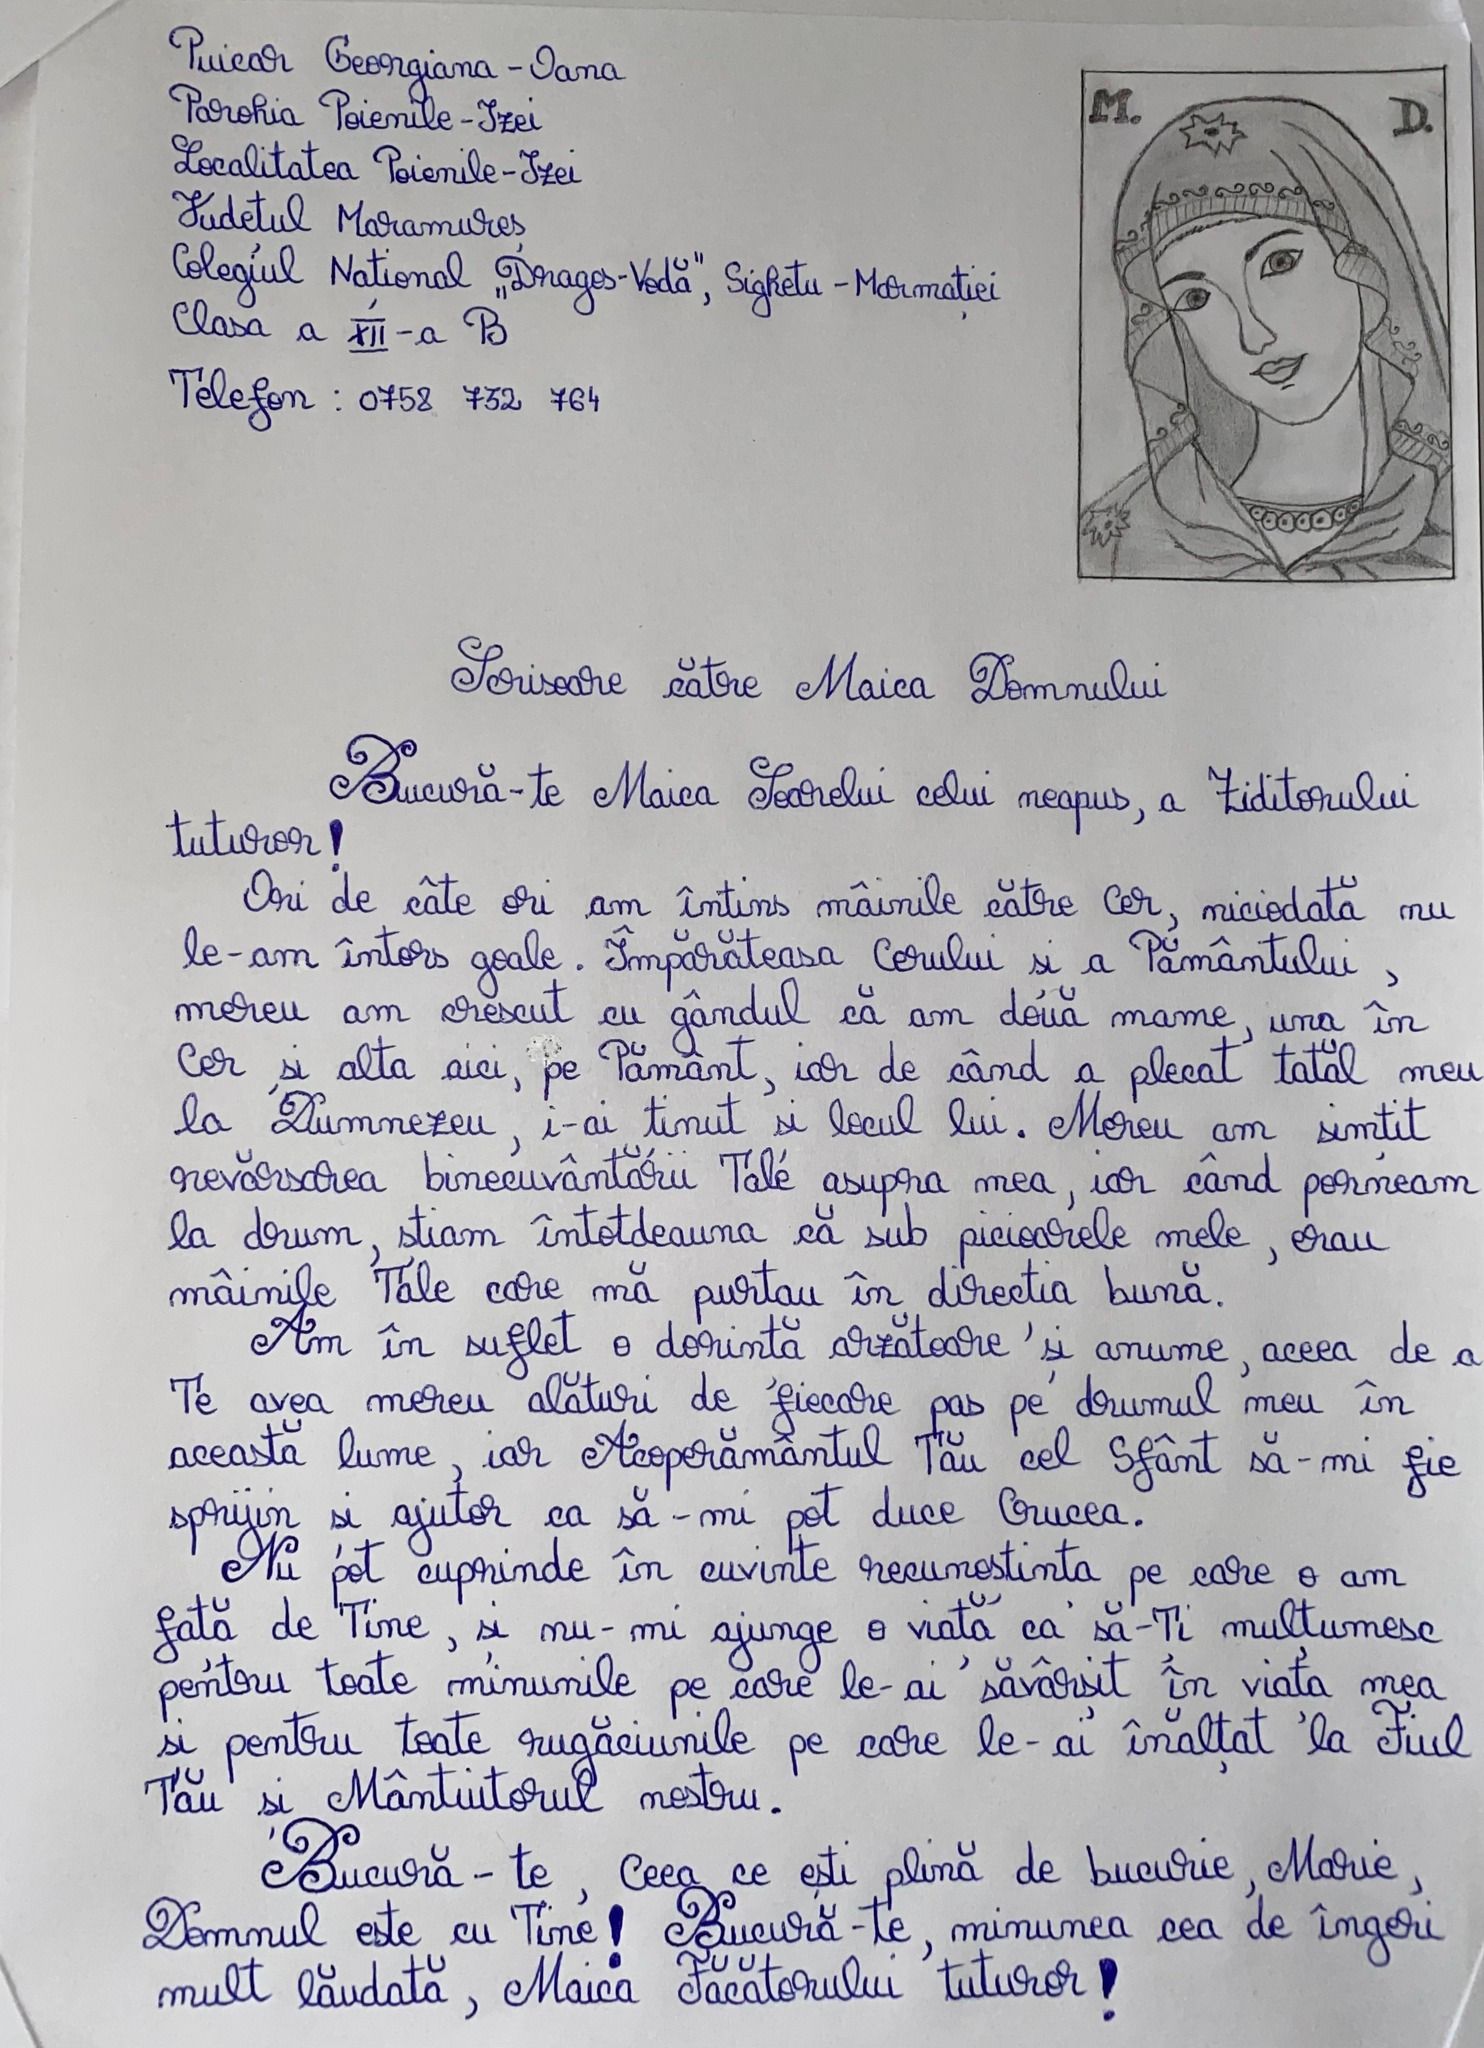 Puicar Georgiana-Oana
Parohia Poienile-Izei
Localitatea Poienile-Izei
Județul Maramureș
Colegiul Național „Dragoș-Vodă", Sighetu-Marmației
Clasa a XII-a B
Telefon: 0758 732 764
M. D.
Scrisoare către Maica Domnului
Bucură-te Maica Soarelui celui neapus, a Ziditorului
tuturor!
Ori de câte ori am întins mâinile către Cer, niciodată nu
le-am întors goale. Împărăteasa Cerului și a Pământului,
mereu am crescut cu gândul că am două mame, una în
Cer și alta aici, pe Pământ, iar de când a plecat tatăl meu
la Dumnezeu, i-ai ținut și locul lui. Mereu am simțit
revărsarea binecuvântării Tale asupra mea, iar când porneam
la drum, știam întotdeauna că sub picioarele mele, erau
mâinile Tale care mă purtau în direcția bună.
Am în suflet o dorință arzătoare și anume, aceea de a
Te avea mereu alături de fiecare pas pe drumul meu în
această lume, iar Acoperământul Tău cel Sfânt să-mi fie
sprijin și ajutor ca să-mi pot duce Crucea.
Nu pot cuprinde în cuvinte recunoștința pe care o am
față de Tine, și nu-mi ajunge o viață ca să-Ți mulțumesc
pentru toate minunile pe care le-ai săvârșit în viața mea
și pentru toate rugăciunile pe care le-ai înălțat la Fiul
Tău și Mântuitorul nostru.
Bucură-te, Ceea ce ești plină de bucurie, Marie,
Domnul este cu Tine! Bucură-te, minunea cea de îngeri
mult lăudată, Maica Făcătorului tuturor!